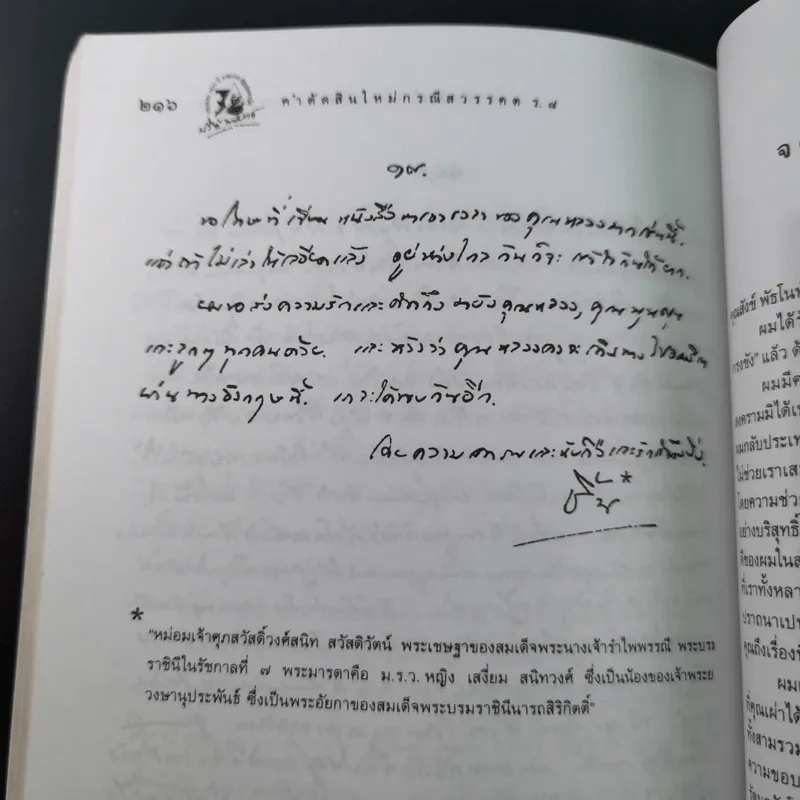 ๒๑๖
คำตัดสินใหม่กรณีสวรรคต ร.๘
๑๙.
ขอโทษที่เขียนหนังสือมาเอาเวลาของคุณหลวงมากเช่นนี้.
แต่ถ้าไม่เล่าให้ละเอียดแล้ว อยู่ห่างไกลกันก็จะเข้าใจกันได้ยาก.
ผมขอส่งความรักและคิดถึงมายังคุณหลวง, คุณพูนศุข
และลูกๆ ทุกคนด้วย. และหวังว่าคุณหลวงคงจะ
ผ่านทางอังกฤษนี้. และได้พบกันอีก.
ด้วยความเคารพและนับถือและรักคิดถึงยิ่ง.
ชิ้น*
*
"หม่อมเจ้าศุภสวัสดิ์วงศ์สนิท สวัสดิวัตน์ พระเชษฐาของสมเด็จพระนางเจ้ารำไพพรรณี พระบรม
ราชินีในรัชกาลที่ ๗ พระมารดาคือ ม.ร.ว.หญิง เสงี่ยม สนิทวงศ์ ซึ่งเป็นน้องของเจ้าพระย
วงษานุประพันธ์ ซึ่งเป็นพระอัยกาของสมเด็จพระบรมราชินีนารถสิริกิตติ์"
คุณสังข์ พัธโนท
ผมได้
กรงขัง" แล้ว
ผมมีค
สงครามมิได้เ
ผมกลับประเท
ไม่ช่วยเราเส
โดยความช่ว
อย่างบริสุทธิ์
ดีของผมในส
ที่เราทั้งหลา
ปรารถนาเป
คุณถึงเรื่อง
ผม
ที่คุณเผ่าได้
ทั้งสามรวม
ความขอบ